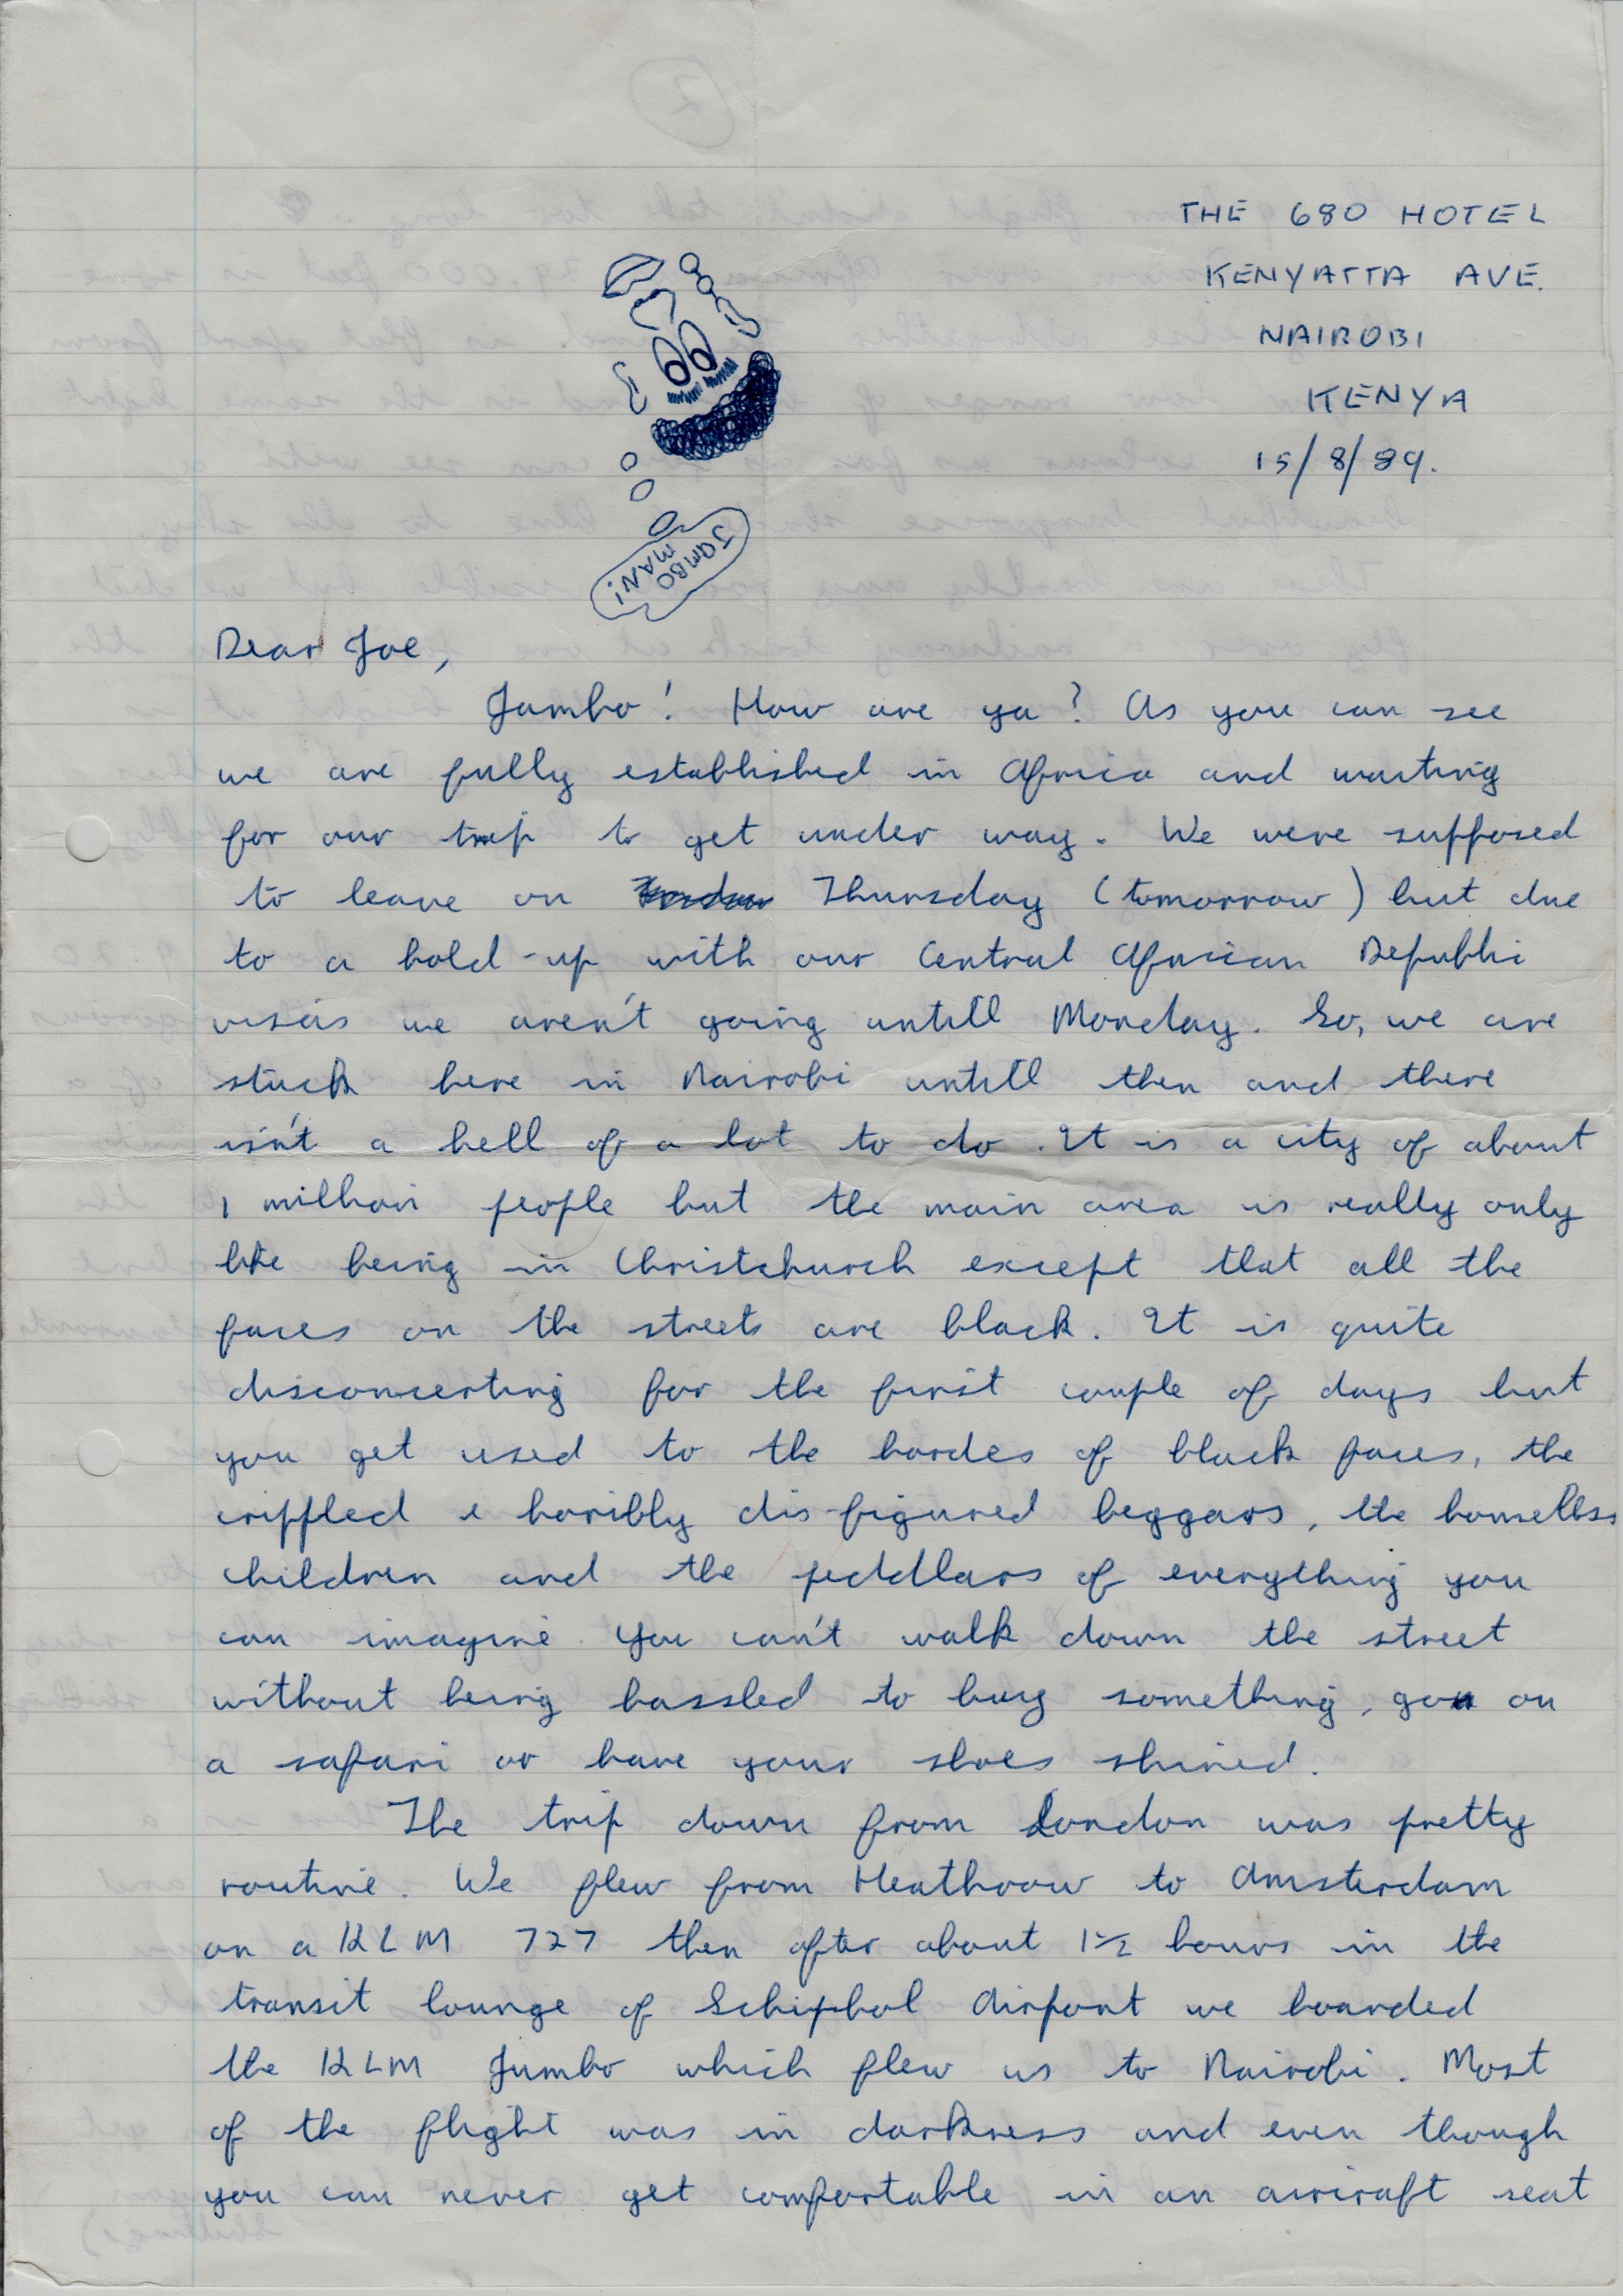 THE 680 HOTEL
KENYATTA AVE.
NAIROBI
KENYA
15/8/89.
JAMBO
MAN!
Dear Joe,
Jambo! How are ya? As you can see
we are fully established in Africa and waiting
for our trip to get under way. We were supposed
to leave on Thursday (tomorrow) but due
to a hold-up with our Central African Republic
visas we aren't going untill Monday. So, we are
stuck here in Nairobi untill then and there
isn't a hell of a lot to do. It is a city of about
1 million people but the main area is really only
like being in Christchurch except that all the
faces on the streets are black. It is quite
disconcerting for the first couple of days but
you get used to the hordes of black faces, the
crippled & horibly dis-figured beggars, the homeless
children and the peddlars of everything you
can imagine. You can't walk down the street
without being hassled to buy something, go on
a safari or have your shoes shined.
The trip down from London was pretty
routine. We flew from Heathrow to Amsterdam
on a KLM 727 then after about 1½ hours in the
transit lounge of Schiphol Airport we boarded
the KLM Jumbo which flew us to Nairobi. Most
of the flight was in darkness and even though
you can never get comfortable in an aircraft seat